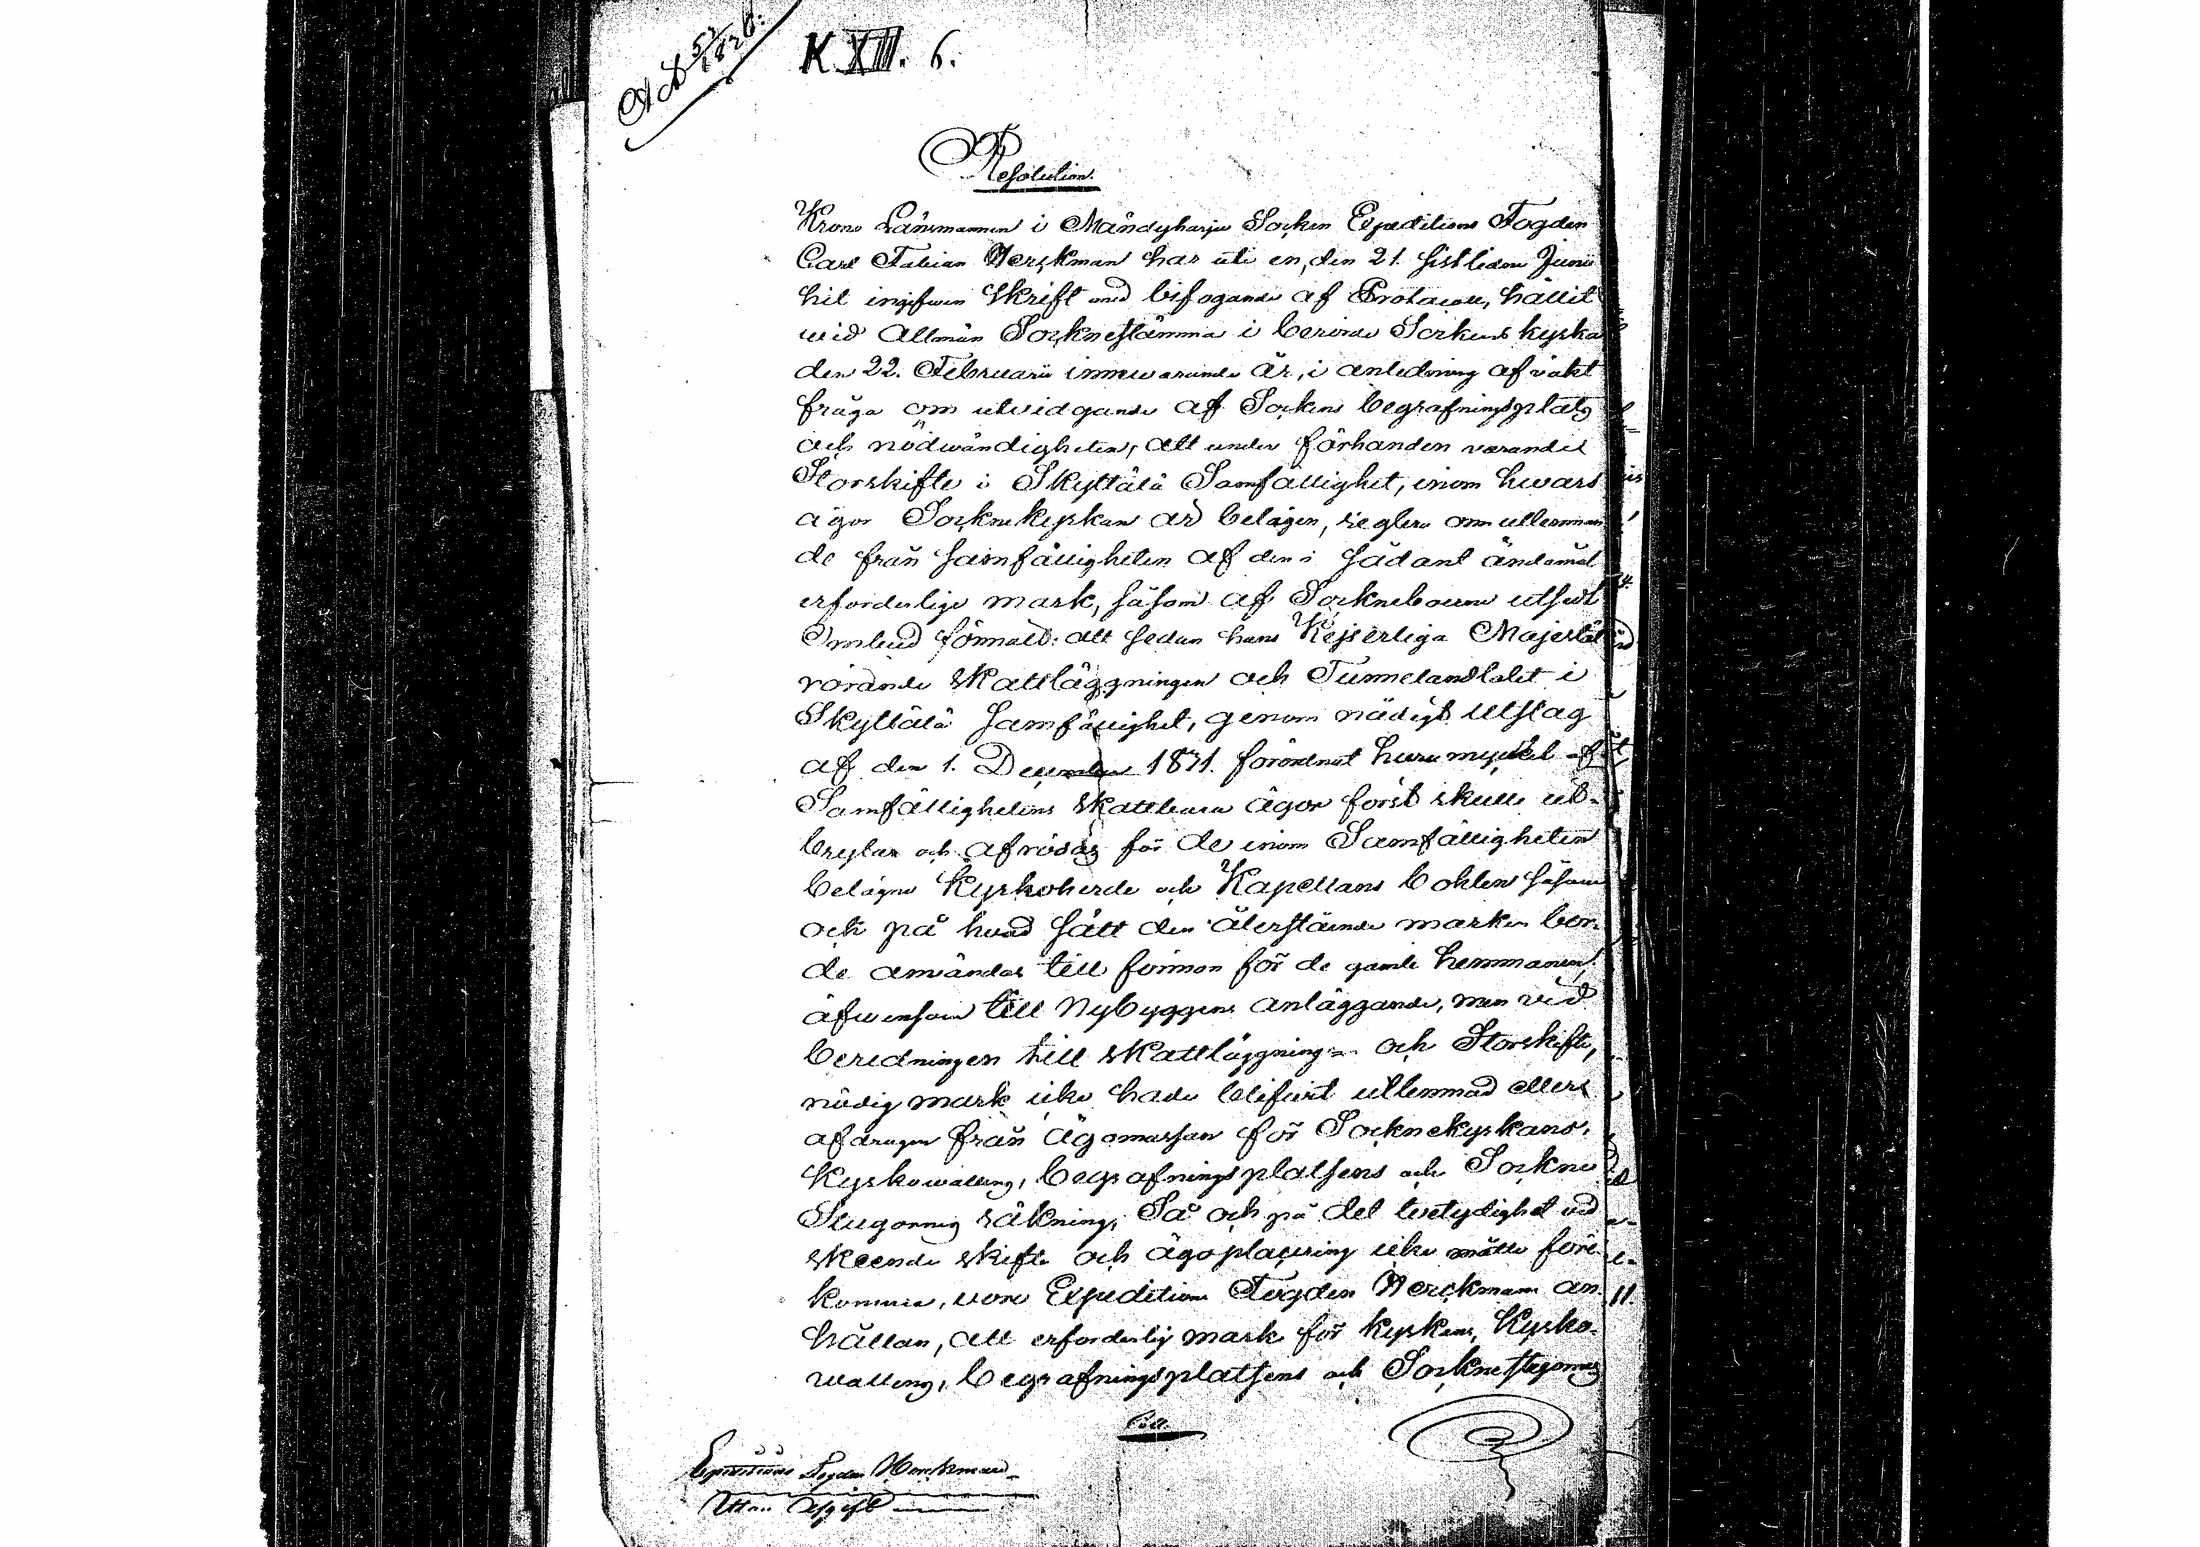 K.XIII. 6.
Resolution.
Krono Länsmannen i Mändyharju Socken Expeditions Fogden
Carl Fabian Herckman har uti en, den 21. sistledne Junii
hit ingifwen skrift med bifogande af Protocoll, hållit
wid Allmän Socknestämma i berörde Sockens kyrka
den 22. Februarii innewarande år, i anledning af wäkt
fråga om utvidgande af Sockens begrafningsplats
och nödwändigheten, att under förhanden varandet
Storskifte i Skyttälä Samfällighet, inom hwars
ägor Socknekyrkan är belägen, reglera om utlemnan
de från samfälligheten af den i sådant ändamål
erforderliga mark, såsom af Sockneboerne utsedt
Ombud förmält: att sedan hans Kejserliga Majestät
rörande skattläggningen och Tunnelandtalet i
Skyttälä samfällighet, genom nådigt utslag
af den 1. December 1871. förordnat huru mycket af
Samfällighetens skattbara ägor först skulle ut-
brytas och afrösas för de inom Samfälligheten
belägne Kyrkoherde och Kapellans bohlen såsom
och på hvad sätt den återstående marken bor-
de användas till förmon för de gamla hemmanen,
äfwensom till Nybyggens anläggande, men vid
beredningen till skattläggning och Storskifte,
nödig mark icke hade blifwit utlemnad ellers
afdragen från ägomassan för Socknekyrkans,
Kyrkowallens, begrafningsplatsens och Sockne
Stugornes räkning, Så och på det tvetydighet vid
skeende skifte och ägoplacering icke måtte före-
komma, vore Expeditions Fogden Herckmans an-
hållan, att erforderlig mark för kyrkans, Kyrko-
wallens, begrafningsplatsens och Socknestugornes
Expeditions Fogden Herckman
Utan Afgift